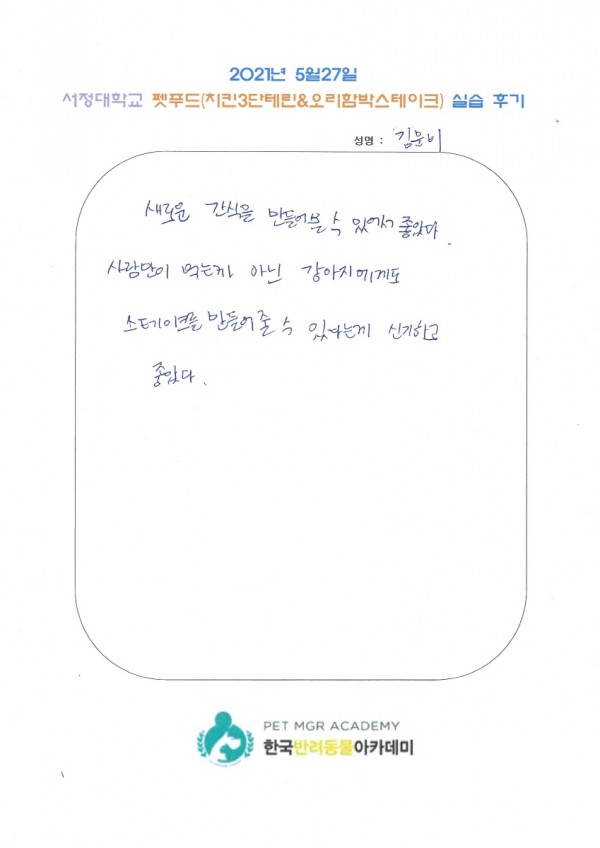 2021년 5월27일
서정대학교 펫푸드(치킨3단테린&오리함박스테이크) 실습 후기
성명 : 김문비
새로운 간식을 만들어볼 수 있어서 좋았다.
사람만이 먹는게 아닌 강아지에게도
스테이크를 만들어줄 수 있다는게 신기하고
좋았다.
PET MGR ACADEMY
한국반려동물아카데미